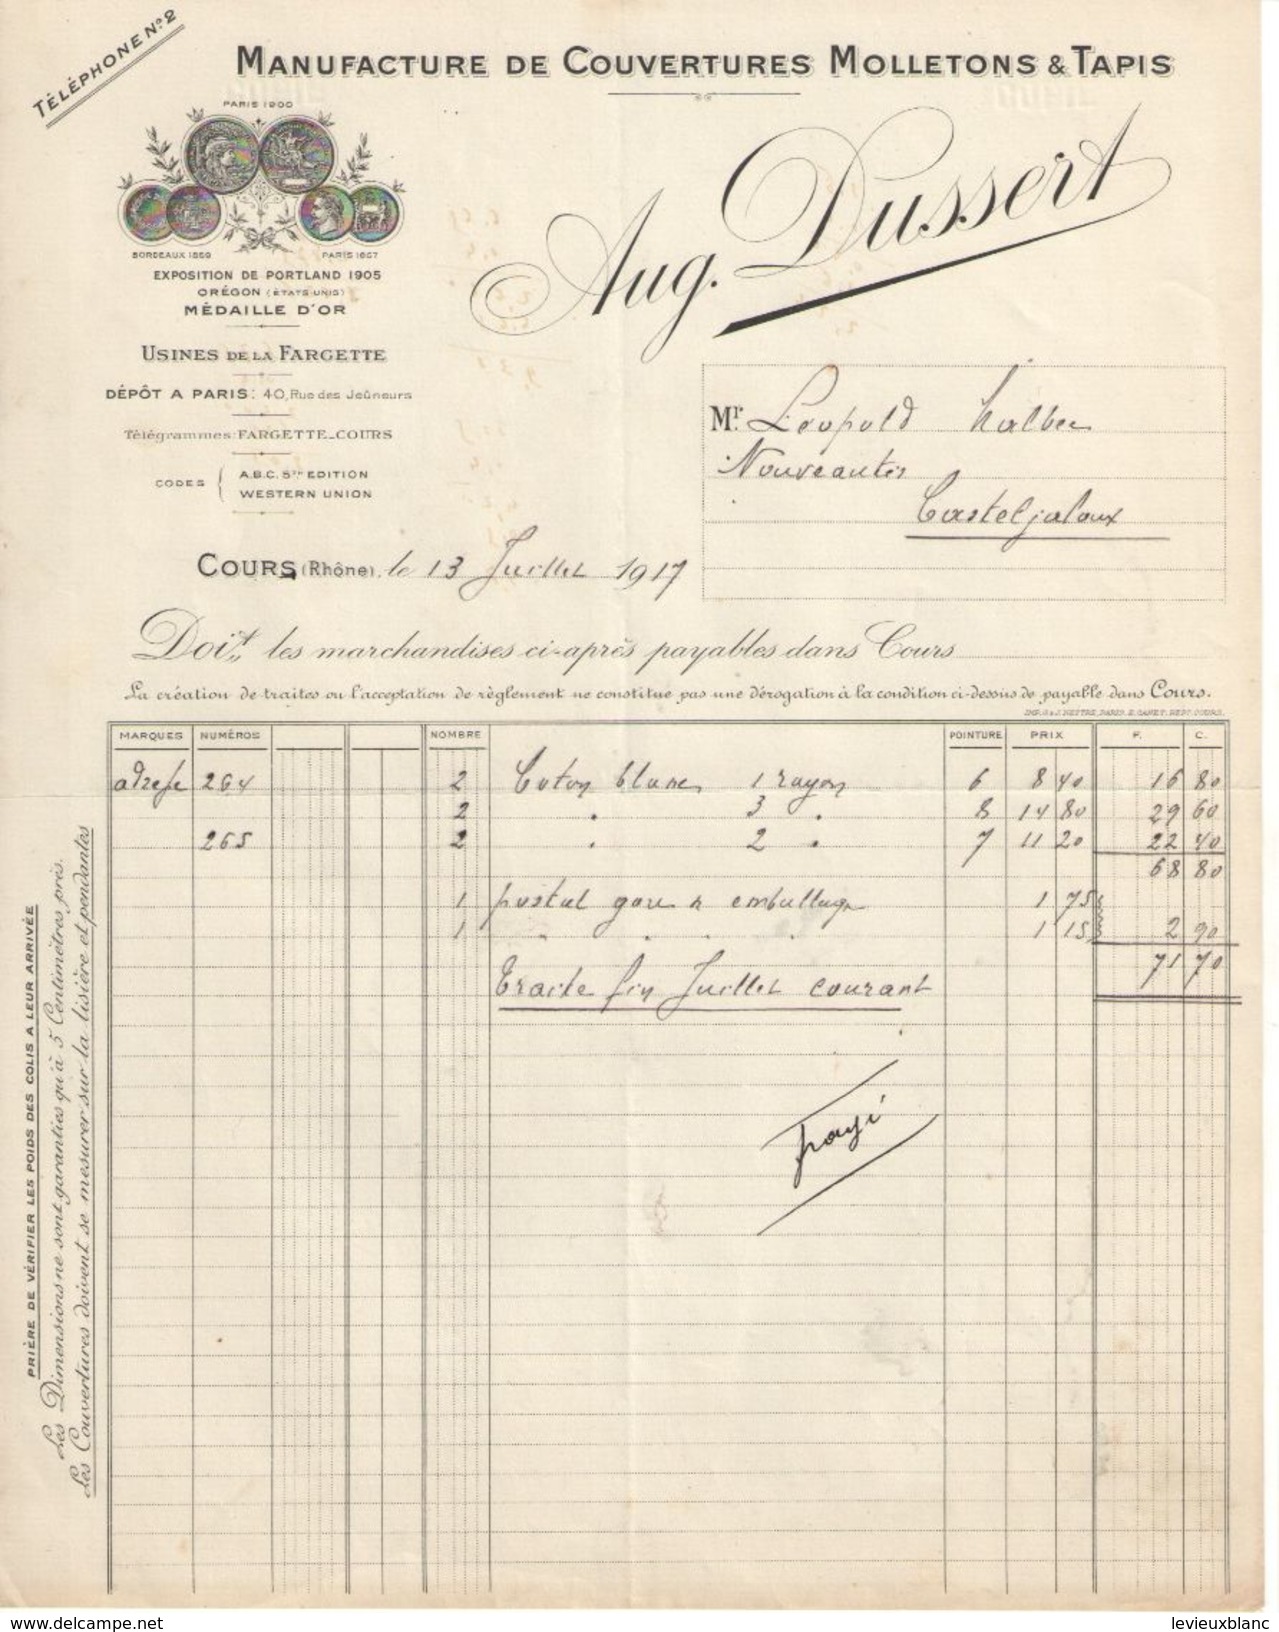 TÉLÉPHONE Nº 2
MANUFACTURE DE COUVERTURES MOLLETONS & TAPIS
PARIS 1900
BORDEAUX 1859 PARIS 1867
EXPOSITION DE PORTLAND 1905
ORÉGON (ÉTATS-UNIS)
MÉDAILLE D'OR
Aug. Dussert
USINES DE LA FARGETTE
DÉPÔT A PARIS: 40, Rue des Jeûneurs
Télégrammes: FARGETTE-COURS
CODES { A.B.C. 5TH EDITION
WESTERN UNION
Mr. Léopold Malbec
Nouveautés
Casteljaloux
COURS (Rhône), le 13 Juillet 1917
Doit les marchandises ci-après payables dans Cours
La création de traites ou l'acceptation de règlement ne constitue pas une dérogation à la condition ci-dessus de payable dans Cours.
MARQUES NUMÉROS NOMBRE POINTURE PRIX F. C.
adresse 264 2 Coton blanc 1 rayon 6 8 40 16 80
2 " 3 " 8 14 80 29 60
265 2 " 2 " 7 11 20 22 40
68 80
1 postal gare & emballage 1 75
1 " " " " 1 15 2 90
71 70
Traite fin Juillet courant
payé
PRIÈRE DE VÉRIFIER LES POIDS DES COLIS A LEUR ARRIVÉE
Les Dimensions ne sont garanties qu'à 5 Centimètres près.
Les Couvertures doivent se mesurer sur la lisière et pendantes
levieuxblanc
www.delcampe.net